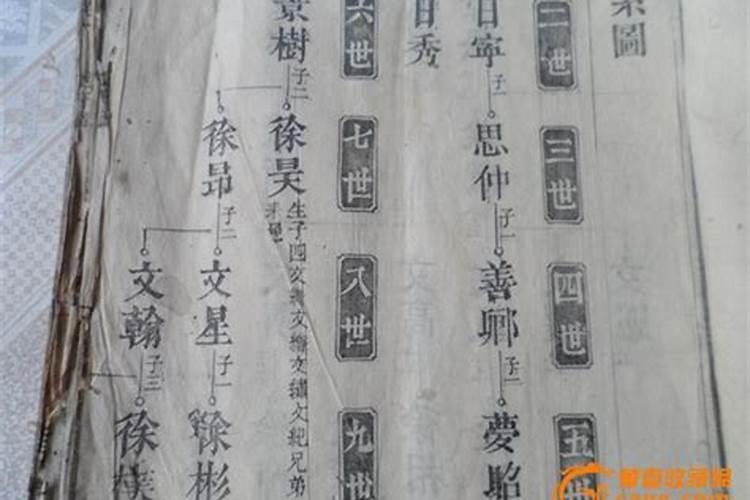 圖
二世
三世
四世
五
日寧
子一
思仲
子一
善卿
子一
夢
日秀
六世
七世
八世
九世
景樹
子二
徐昊
生子四文
文翰文繡文紀兄弟
徐昂
子二
文星
子一
徐彬
文翰
子三
徐